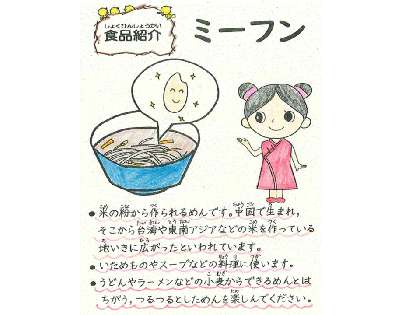 しょくひんしょうかい
食品紹介
ミーフン
●米の粉から作られるめんです。中国で生まれ,
そこから台湾や東南アジアなどの米を作っている
地いきに広がったといわれています。
●いためものやスープなどの料理に使います。
●うどんやラーメンなどの小麦からできるめんとは
ちがう,つるつるとしためんを楽しんでください。